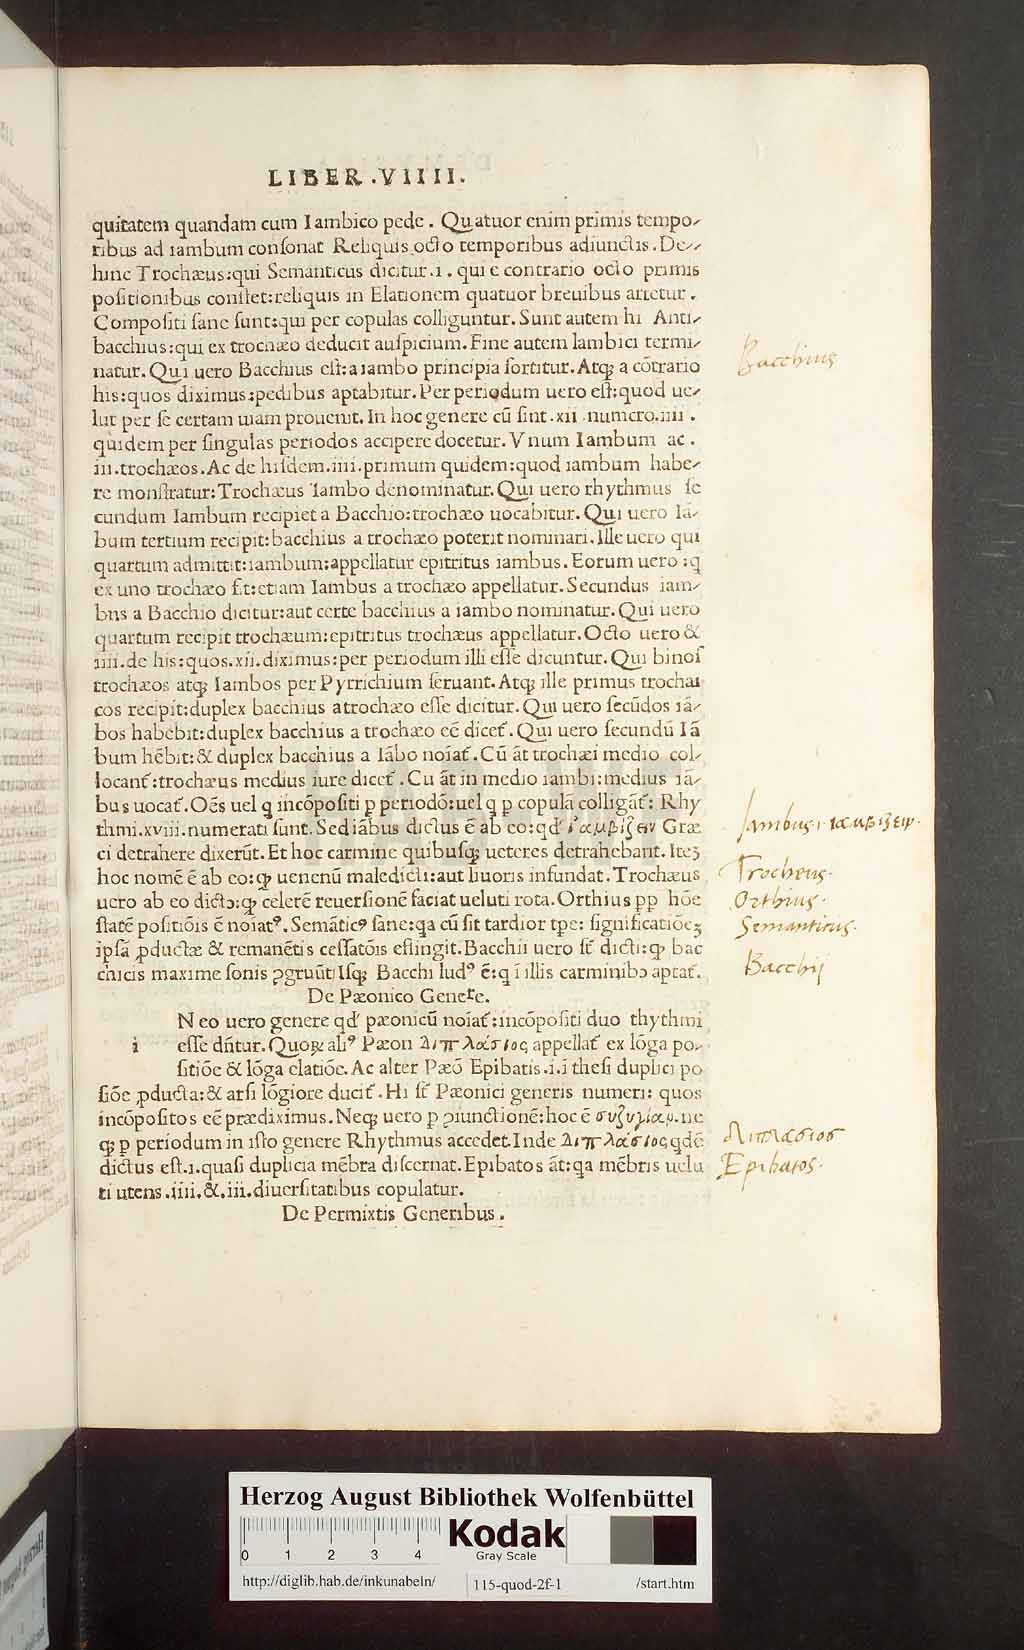 LIBER .VIIII.
quitatem quandam cum Iambico pede . Quatuor enim primis tempo-
ribus ad iambum conſonat Reliquis octo temporibus adiunctis . De-
hinc Trochæus:qui Semanticus dicitur .i . qui e contrario octo primis
poſitionibus conſtet:reliquis in Elationem quatuor breuibus artetur .
Compoſiti ſane ſunt:qui per copulas colliguntur . Sunt autem hi Anti-
bacchius:qui ex trochæo deducit auſpicium . Fine autem Iambici termi-
natur . Qui uero Bacchius eſt:a iambo principia ſortitur . Atq; a cõtrario
his:quos diximus:pedibus aptabitur . Per periodum uero eſt:quod ue-
lut per ſe certam uiam prouenit . In hoc genere cũ ſint .xii numero.iiii .
quidem per ſingulas periodos accipere docetur . Vnum Iambum ac .
iii.trochæos . Ac de hiſdem .iiii.primum quidem:quod iambum habe-
re monſtratur:Trochæus Iambo denominatur . Qui uero rhythmus ſe
cundum Iambum recipiet a Bacchio:trochæo uocabitur . Qui uero Iã-
bum tertium recipit:bacchius a trochæo poterit nominari . Ille uero qui
quartum admittit:iambum:appellatur epitritus iambus . Eorum uero :q
ex uno trochæo fit:etiam Iambus a trochæo appellatur . Secundus iam-
bus a Bacchio dicitur:aut certe bacchius a iambo nominatur . Qui uero
quartum recipit trochæum:epitritus trochæus appellatur . Octo uero &
iiii.de his:quos.xii.diximus:per periodum illi eſſe dicuntur . Qui binoſ
trochæos atq; Iambos per Pyrrichium ſeruant . Atq; ille primus trochai
cos recipit:duplex bacchius atrochæo eſſe dicitur . Qui uero ſecũdos iã-
bos habebit:duplex bacchius a trochæo eẽ dicet̃ . Qui uero ſecundũ Iã
bum hẽbit:& duplex bacchius a Iãbo noĩat̃ . Cũ ãt trochæi medio col-
locant̃:trochæus medius iure dicet̃ . Cu ãt in medio iambi:medius iã-
bus uocat̃ . Oẽs uel q incõpoſiti p periodõ:uel q p copulã colligãt̃: Rhy
thmi.xviii.numerati ſunt . Sed iãbus dictus ẽ ab eo:qď ἰαμβιζειν Græ
ci detrahere dixerũt . Et hoc carmine quibuſq; ueteres detrahebant . Iteʒ
hoc nomẽ ẽ ab eo:ꝙ uenenũ maledicti:aut liuoris infundat . Trochæus
uero ab eo dictꝰ:ꝙ celerẽ reuerſionẽ faciat ueluti rota . Orthius ꝓp hõe
ſtatẽ poſitiõis ẽ noĩatꝰ . Semãticꝰ ſane:qa cũ ſit tardior tpe: ſignificatiõeʒ
ipſã ꝓductæ & remanẽtis ceſſatõis effingit . Bacchii uero ſt̃ dicti:ꝙ bac
chicis maxime ſonis ꝯgruũt Iſq; Bacchi ludꝰ ẽ:q ĩ illis carminibꝰ aptat̃ .
De Pæonico Genere .
N eo uero genere qď pæonicũ noĩat̃:incõpoſiti duo rhythmi
i eſſe dñtur . Quoꝝ aliꝰ Pæon διπλάσιος appellat̃ ex lõga po-
ſitiõe & lõga elatiõe . Ac alter Pæõ Epibatis .i.ĩ theſi duplici po
ſiõe ꝓducta:& arſi lõgiore ducit̃ . Hi ſt̃ Pæonici generis numeri: quos
incõpoſitos eẽ prædiximus . Neq; uero p ꝯiunctionẽ:hoc ẽ συζυγίαν.ne
q; p periodum in iſto genere Rhythmus accedet . Inde διπλάσιος qdẽ
dictus eſt .i.quaſi duplicia mẽbra diſcernat . Epibatos ãt:qa mẽbris uelu
ti utens .iiii.&.iii.diuerſitatibus copulatur .
De Permixtis Generibus .
Bacchius
Iambus · ιαμβιζειν·
Trocheus·
Orthius·
Semanticus·
Bacchij
διπλασιος
Epibatos·
Herzog August Bibliothek Wolfenbüttel
0 1 2 3 4
Kodak
Gray Scale
http://diglib.hab.de/inkunabeln/
115-quod-2f-1
/start.htm